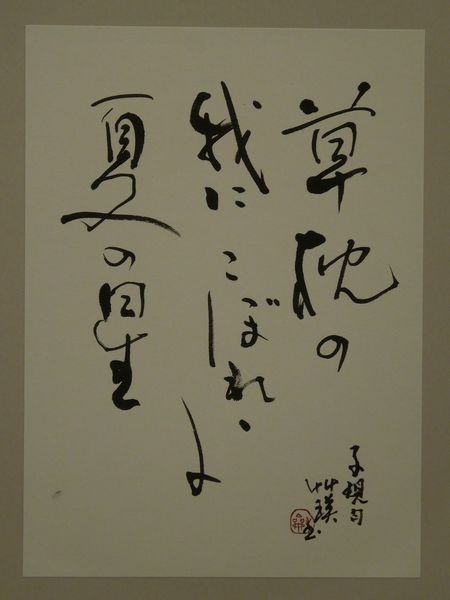 草枕の
我にこぼれよ
夏の星
子規句